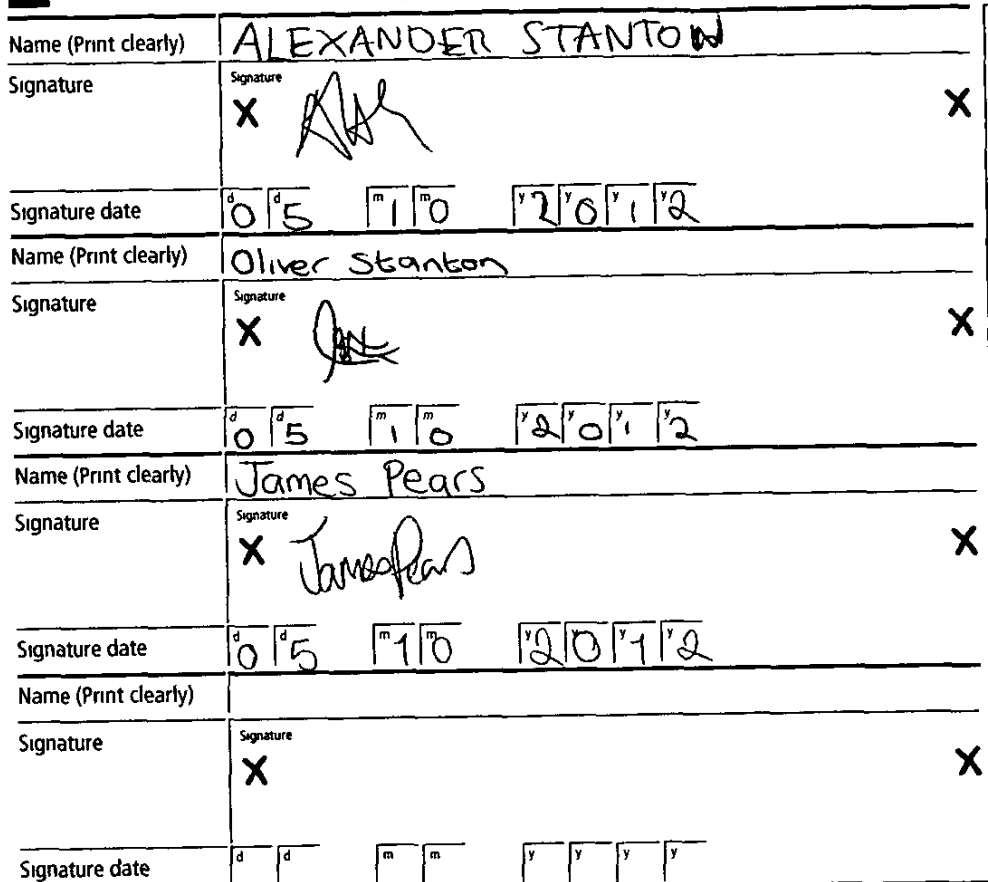 Name (Print clearly) ALEXANDER STANTON
Signature Signature
X X
Signature date d0 d5 m1 m0 y2 y0 y1 y2
Name (Print clearly) Oliver Stanton
Signature Signature
X X
Signature date d0 d5 m1 m0 y2 y0 y1 y2
Name (Print clearly) James Pears
Signature Signature
X James Pears X
Signature date d0 d5 m1 m0 y2 y0 y1 y2
Name (Print clearly)
Signature Signature
X X
Signature date d d m m y y y y